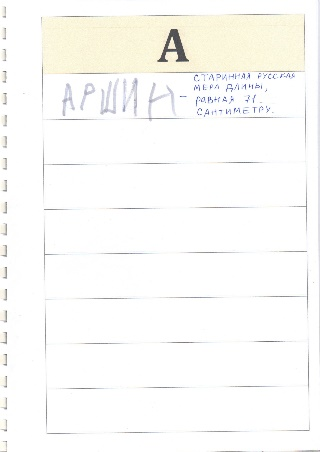 А
АРШИН – СТАРИННАЯ РУССКАЯ
МЕРА ДЛИНЫ,
РАВНАЯ 71
САНТИМЕТРУ.